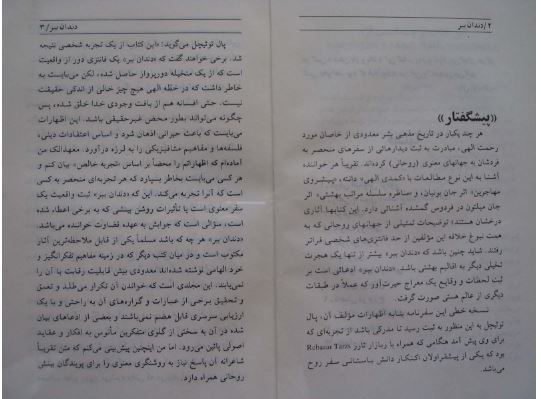 ۲/دندان ببر
«پیشگفتار»
هر چند یکبار در تاریخ مذهبی بشر معدودی از خاصان مورد
رحمت الهی، مبادرت به ثبت دیدارهائی از سفرهای منحصر به
فردشان به جهانهای معنوی (روحانی) کرده‌اند. تقریباً هر خواننده
آشنا به این نوع مطالعات با «کمدی الهی» دانته، «پیشروی
مهاجرین» اثر جان بونیان، و «مناظره سلسله مراتب بهشتی» اثر
جان میلتون در فردوس گمشده آشنائی دارد. این کتابها آثاری
درخشان هستند؛ توضیحات تمثیلی از جهانهای روحانی که به
همت نبوغ خلاقه این مؤلفین از حد فانتزی‌های شخصی فراتر
رفتند. شاید چنین باشد که «دندان ببر» بیشتر از تنها یک هجرت
تخیلی دیگر به اقالیم بهشتی باشد. «دندان ببر» ادعائی است بر
ثبت لحظات و وقایع یک معراج حیرت‌آور که عملاً در طبقات
دیگری از عالم هستی صورت گرفت.
نسخه خطی این سفرنامه بنابه اظهارات مؤلف آن، پال
توئیچل به این منظور به ثبت رسید تا مدرکی باشد از تجربه‌ای که
برای وی پیش آمد هنگامی که همراه با ربازار تارز Rebazar Tarzs
بود که یکی از پیشقراولان اکنکار دانش باستانی سفر روح
می‌باشد.
دندان ببر/۳
پال توئیچل می‌گوید: «این کتاب از یک تجربه شخصی نتیجه
شد. برخی خواهند گفت که «دندان ببر» یک فانتزی دور از واقعیت
است که از یک متخیله دورپرواز حاصل شده، لکن می‌بایست به
خاطر داشت که در خطه الهی هیچ چیز خالی از اندکی حقیقت
نیست. حتی افسانه هم از بافت وجودی خدا خلق شده، پس
چگونه می‌تواند بطور محض غیرحقیقی باشد. این اظهارات
می‌بایست که باعث حیرانی اذهان شود و اساس اعتقادات دینی،
فلسفه‌ها و مفاهیم متافیزیکی را به لرزه درآورد. معهذالک من
آماده‌ام که اظهاراتم را محضاً بر اساس «تجربه خالص» بیان کنم و
هر کسی می‌بایست بخاطر بسپارد که هر تجربه‌ای منحصر به کسی
است که آنرا تجربه می‌کند. این که «دندان ببر» ثبت واقعیت یک
سفر معنوی است یا تأثیرات روشن بینشی که به برخی اعطاء شده
است، سؤالی است که جوابش به عهده قضاوت خواننده می‌باشد.
«دندان ببر» هر چه که باشد مسلماً یکی از قابل ملاحظه‌ترین آثار
مکتوب است و در میان کتب دیگر که در زمینه مفاهیم تفکرانگیز و
خرد الهامی نوشته شده‌اند معدودی بیش قابلیت رقابت با آن را
نمی‌یابند. این مجلدی است که خواندن آن تکرار می‌طلبد و تعمق
و تحقیق برخی از عبارات و گزاره‌های آن به راحتی و با یک
ارزیابی سرسری قابل هضم نمی‌باشند و بعضی از ادعاهای بیان
شده در آن به سختی از گلوی متفکرین مأنوس به افکار و عقاید
اصولی پائین می‌رود. اما من اینچنین پیش‌بینی می‌کنم که متن تقریباً
شاعرانه آن پاسخ نیاز به روشنگری معنوی را برای پویندگان بینش
روحانی همراه دارد.